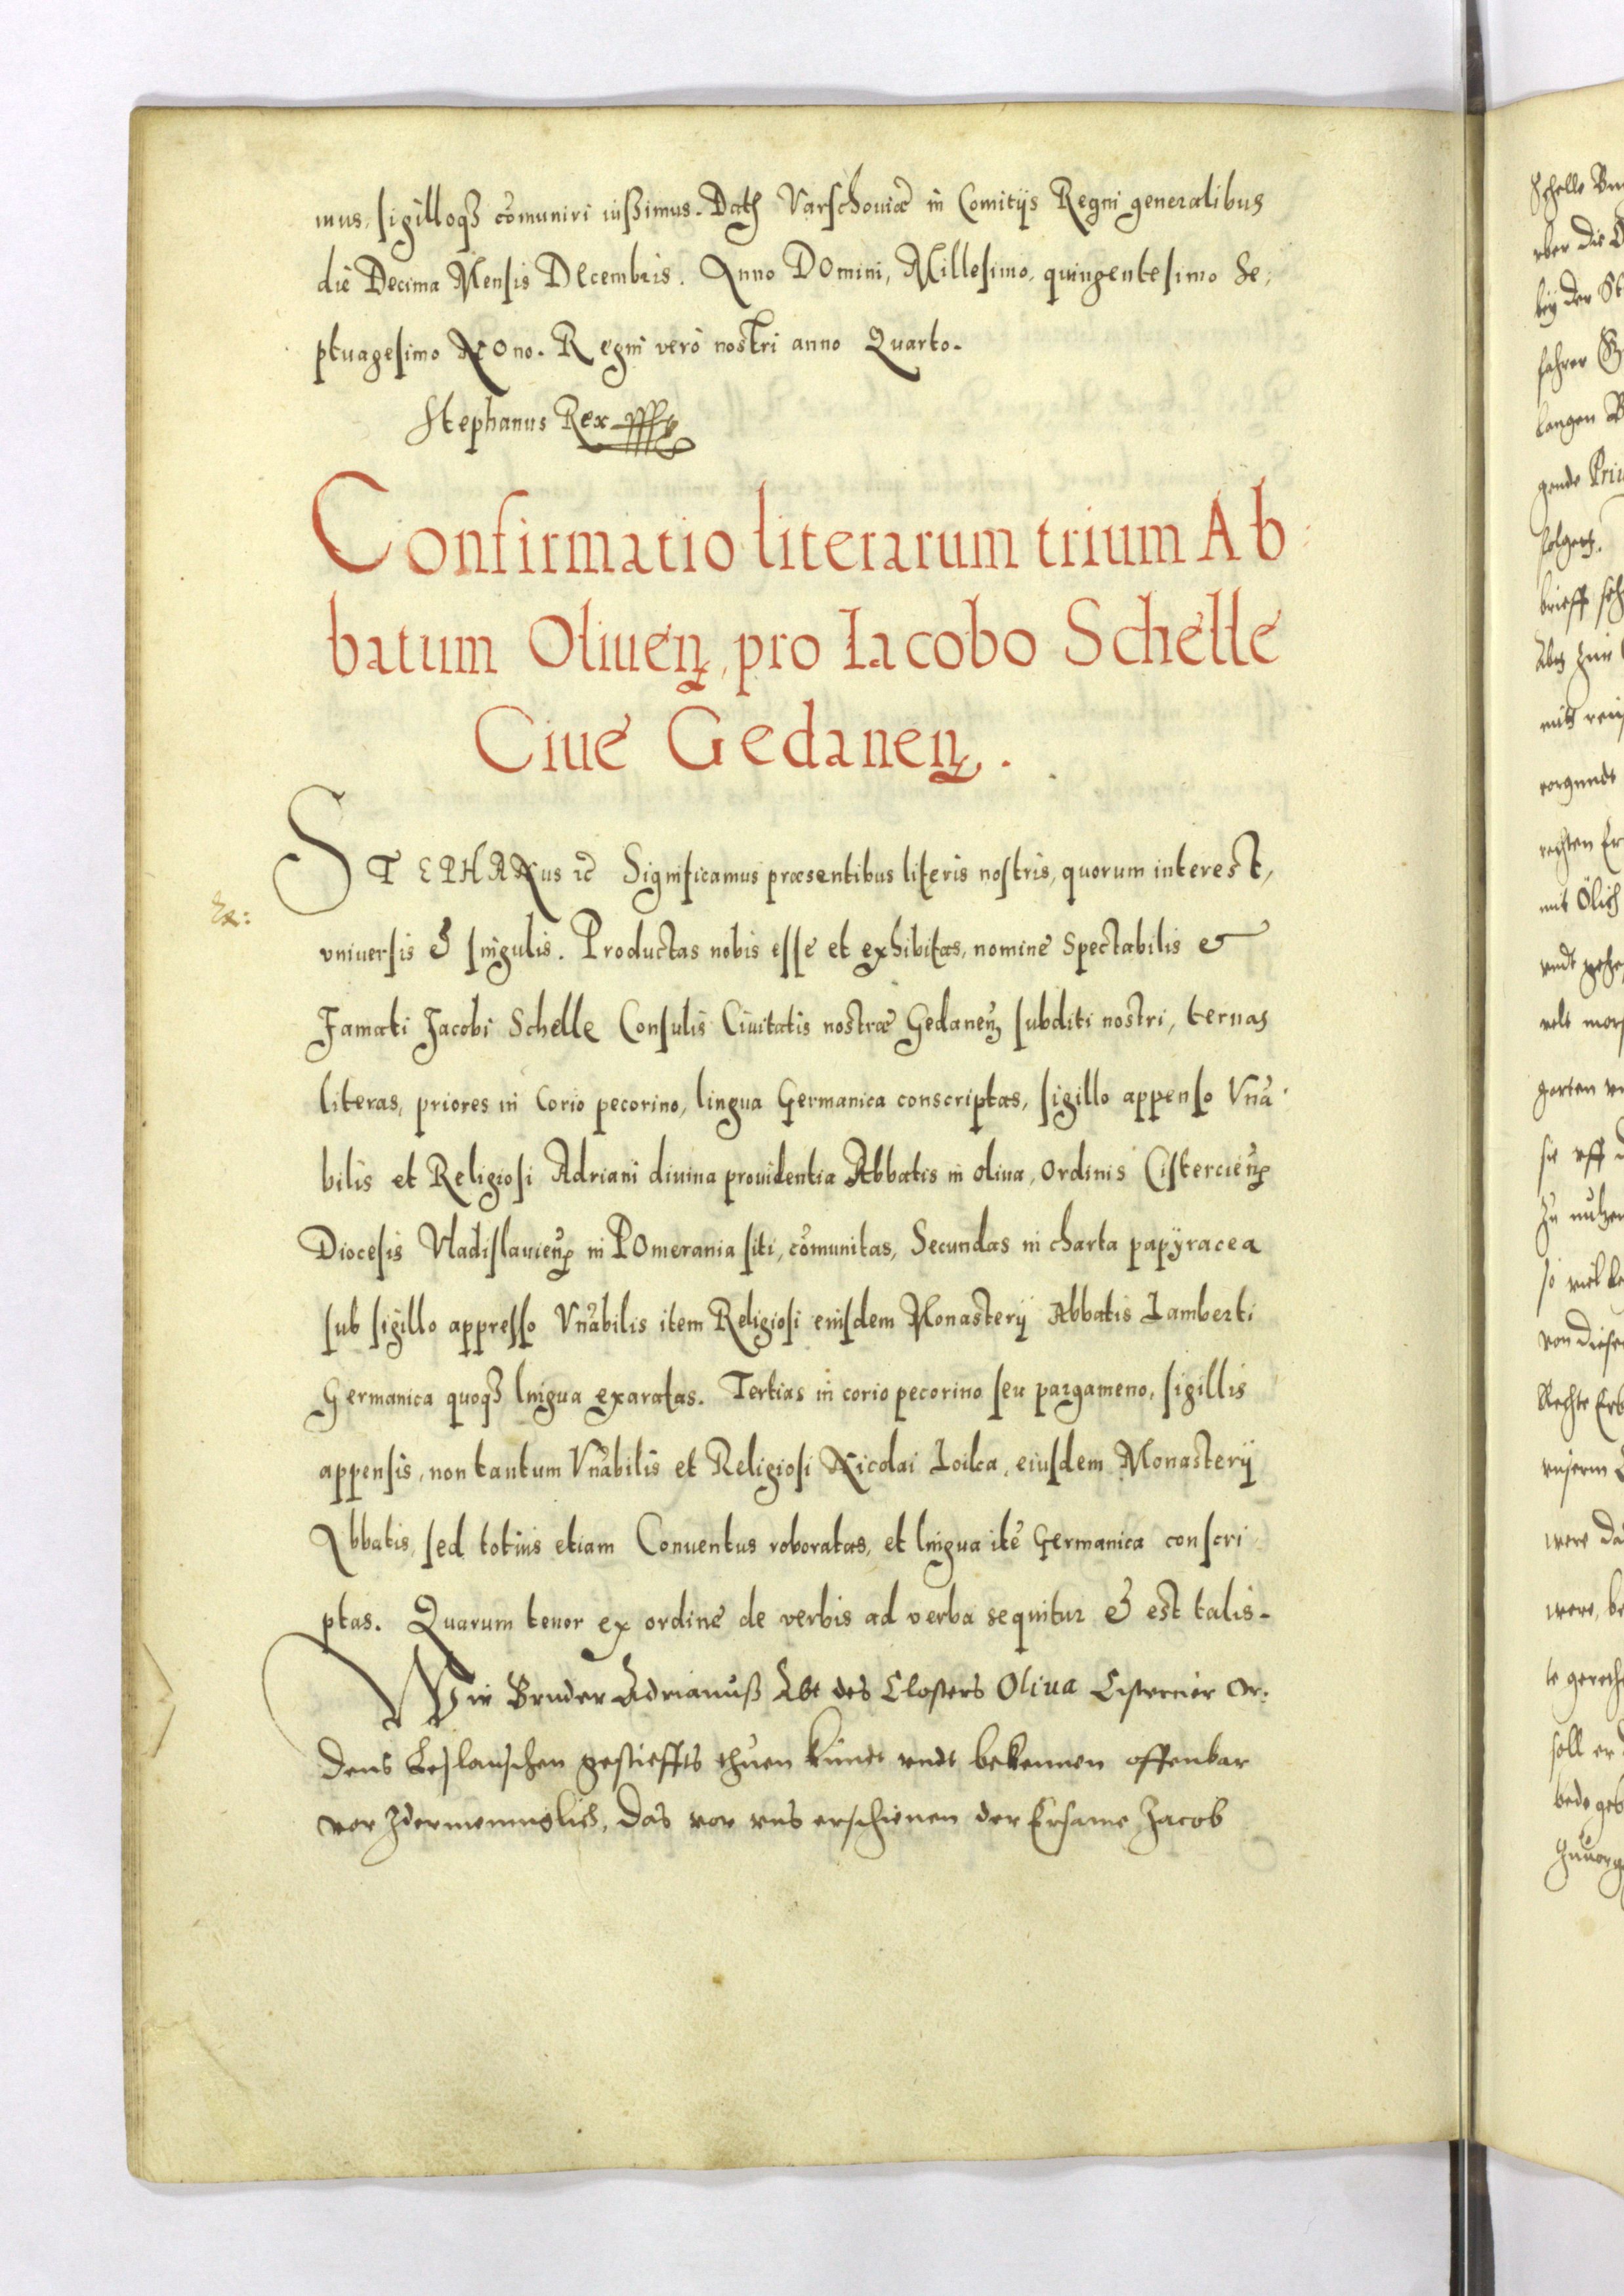 mus, sigilloqȝ cõmuniri iussimus. Datȝ Varschouiæ in Comitijs Regni generalibus
die Decima Mensis Decembris. Anno Domini, Millesimo, quingentesimo Se,
ptuagesimo Nono. Regni vero nostri anno Quarto.
Stephanus Rex
Confirmatio literarum trium Ab
batum Oliueñ, pro Iacobo Schelle
Ciue Gedaneñ.
STEPHANus ꝛc Significamus præsentibus literis nostris, quorum interest,
vniuersis & singulis. Productas nobis esse et exhibitas, nomine Spectabilis &
Famati Jacobi Schelle Consulis Ciuitatis nostræ Gedaneñ subditi nostri, ternas
literas, priores in Corio pecorino, lingua Germanica conscriptas, sigillo appenso Vnã
bilis et Religiosi Adriani diuina prouidentia Abbatis in oliua, Ordinis Cistercieñ
Diocesis Vladislauieñ in Pomerania siti, cõmunitas, Secundas in charta papÿracea
sub sigillo appresso Vnãbilis item Religiosi eiusdem Monasterij Abbatis Lamberti
Germanica quoqȝ lingua exaratas. Tertias in corio pecorino seu pargameno, sigillis
appensis, non tantum Vnãbilis et Religiosi Nicolai Loilca, eiusdem Monasterij
Abbatis, sed totius etiam Conuentus roboratas, et lingua itẽ Germanica conscri
ptas. Quarum tenor ex ordine de verbis ad verba sequitur & est talis.
Wir Bruder Adrianuß Abt des Closters Oliua Cistercier Or,
dens Leslauschen gestieffts thuen kundt vndt bekennen offenbar
vor Idermenniglich, Das vor vns erschienen der Ersame Jacob